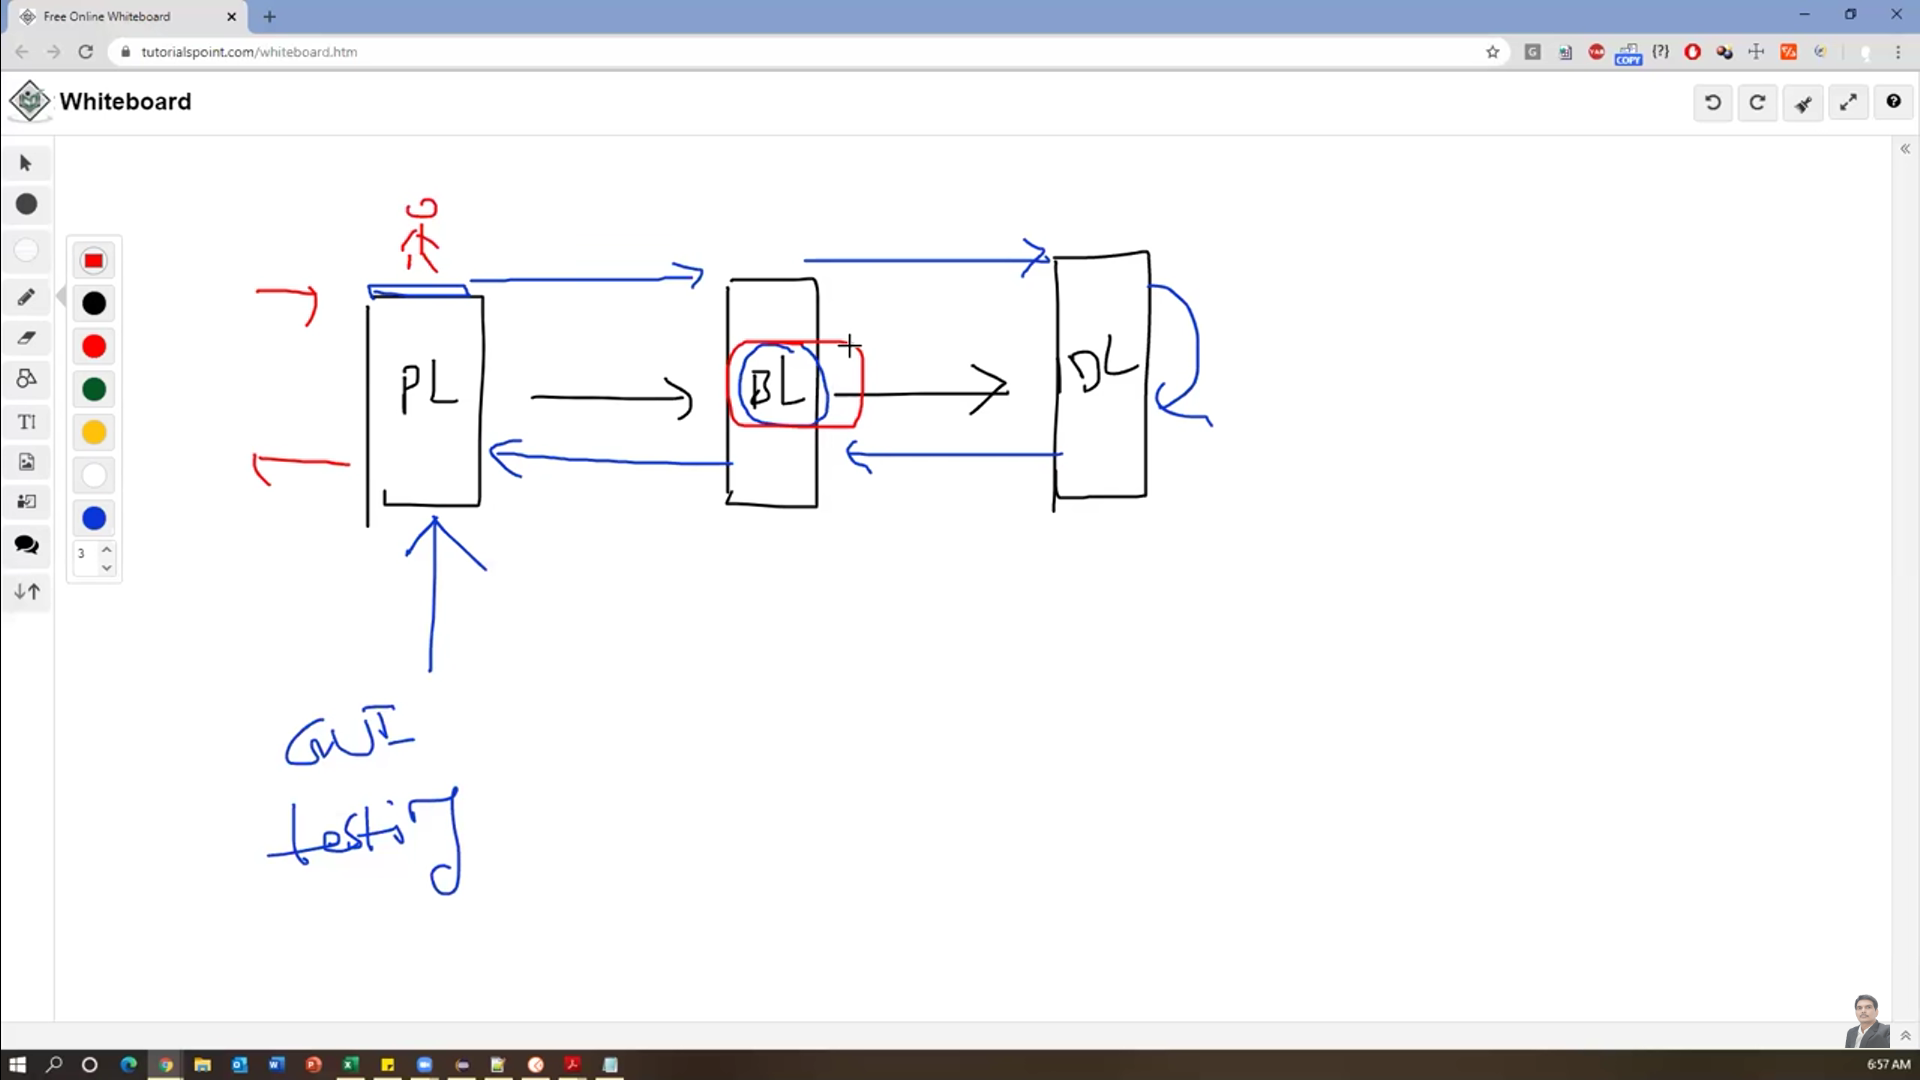 Free Online Whiteboard
tutorialspoint.com/whiteboard.htm
COPY
Whiteboard
PL
BL
DL
TI
3
GUI
testing
6:57 AM